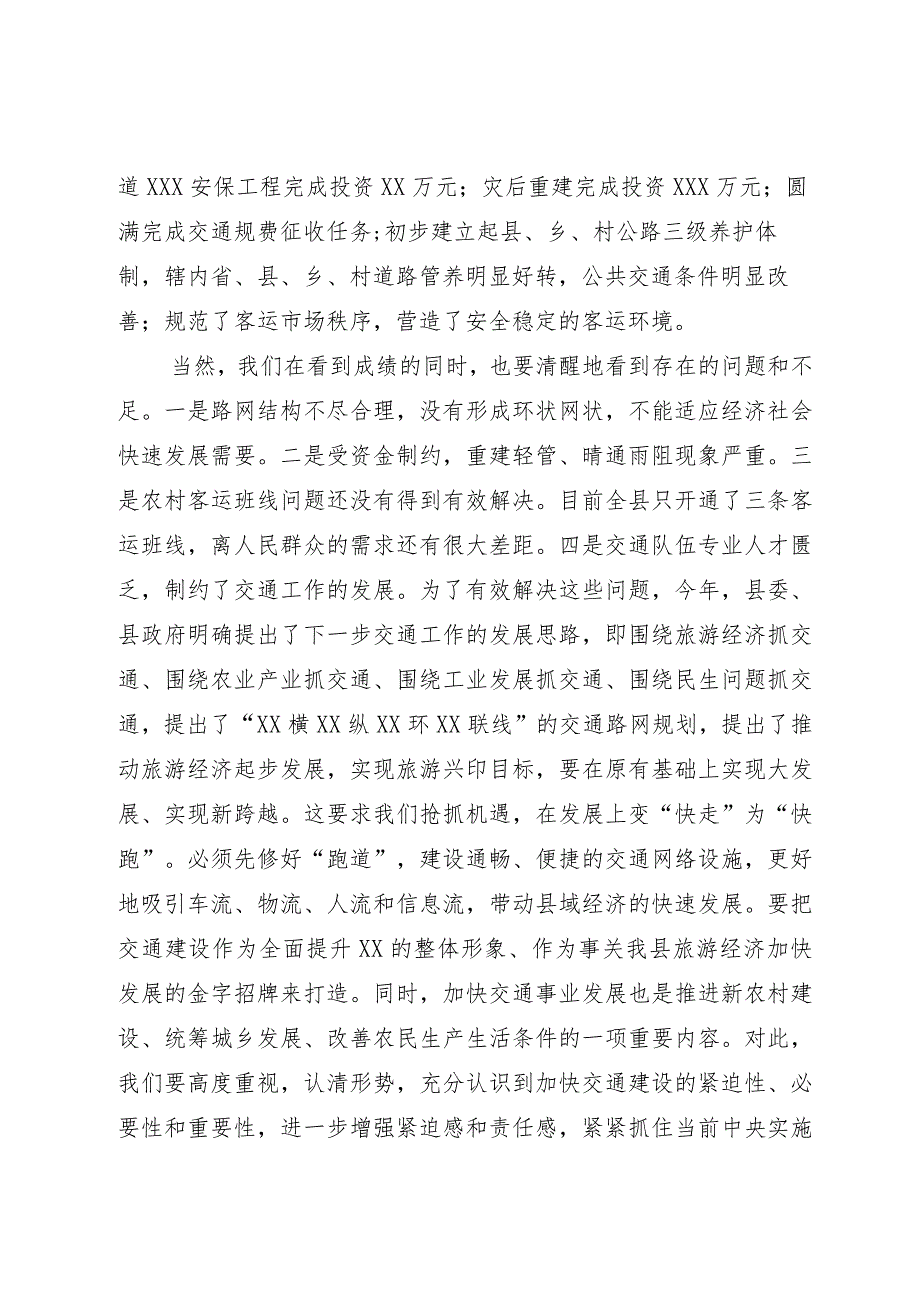 道 XXX 安保工程完成投资 XX 万元；灾后重建完成投资 XXX 万元；圆
满完成交通规费征收任务;初步建立起县、乡、村公路三级养护体
制，辖内省、县、乡、村道路管养明显好转，公共交通条件明显改
善；规范了客运市场秩序，营造了安全稳定的客运环境。
当然，我们在看到成绩的同时，也要清醒地看到存在的问题和不
足。一是路网结构不尽合理，没有形成环状网状，不能适应经济社会
快速发展需要。二是受资金制约，重建轻管、晴通雨阻现象严重。三
是农村客运班线问题还没有得到有效解决。目前全县只开通了三条客
运班线，离人民群众的需求还有很大差距。四是交通队伍专业人才匮
乏，制约了交通工作的发展。为了有效解决这些问题，今年，县委、
县政府明确提出了下一步交通工作的发展思路，即围绕旅游经济抓交
通、围绕农业产业抓交通、围绕工业发展抓交通、围绕民生问题抓交
通，提出了“XX 横 XX 纵 XX 环 XX 联线”的交通路网规划，提出了推
动旅游经济起步发展，实现旅游兴印目标，要在原有基础上实现大发
展、实现新跨越。这要求我们抢抓机遇，在发展上变“快走”为“快
跑”。必须先修好“跑道”，建设通畅、便捷的交通网络设施，更好
地吸引车流、物流、人流和信息流，带动县域经济的快速发展。要把
交通建设作为全面提升 XX 的整体形象、作为事关我县旅游经济加快
发展的金字招牌来打造。同时，加快交通事业发展也是推进新农村建
设、统筹城乡发展、改善农民生产生活条件的一项重要内容。对此，
我们要高度重视，认清形势，充分认识到加快交通建设的紧迫性、必
要性和重要性，进一步增强紧迫感和责任感，紧紧抓住当前中央实施